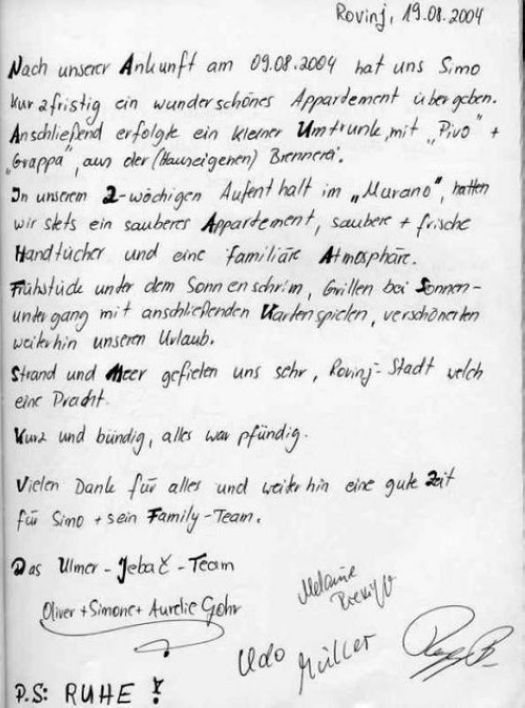 Rovinj, 19.08.2004
Nach unserer Ankunft am 09.08.2004 hat uns Simo
kurzfristig ein wunderschönes Appartement übergeben.
Anschließend erfolgte ein kleiner Umtrunk mit "Pivo" +
"Grappa", aus der (Hauseigenen) Brennerei.
In unserem 2-wöchigen Aufenthalt im "Murano", hatten
wir stets ein sauberes Appartement, saubere + frische
Handtücher und eine familiäre Atmosphäre.
Frühstück unter dem Sonnenschrim, Grillen bei Sonnen-
untergang mit anschließenden Kartenspielen, verschönerten
weiterhin unseren Urlaub.
Strand und Meer gefielen uns sehr, Rovinj-Stadt welch
eine Pracht.
Kurz und bündig, alles war pfündig.
Vielen Dank für alles und weiterhin eine gute Zeit
für Simo + sein Family-Team.
Das Ulmer-Jebač-Team
Oliver + Simone + Aurelie Gohr
Melanie
Udo Müller
P.S: RUHE!